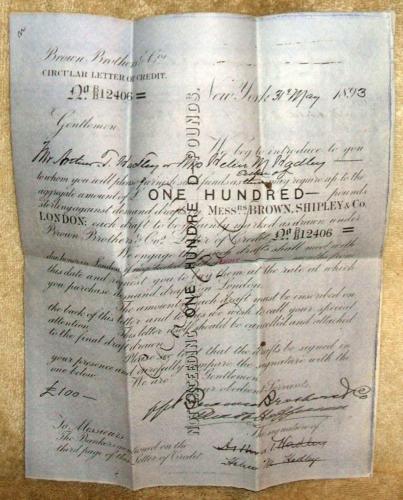 Brown Brothers & Co's
CIRCULAR LETTER OF CREDIT.
No B/B 12406 =
New York, 31st May 1893
Gentlemen
We beg to introduce to you
Mr Arthur T. Hadley or Mrs Helen M Hadley
to whom you will please furnish such funds as may require up to the
aggregate amount of £ ONE HUNDRED pounds
sterling against demand drafts on MESSRS BROWN, SHIPLEY & CO.
LONDON: each draft to be plainly marked as drawn under
Brown Brothers & Co's Letter of Credit No B/B 12406 =
We engage that drafts shall meet with
due honor in London if negotiated from
this date and request you to buy them at the rate at which
you purchase demand drafts on London.
The amount of each draft must be endorsed on
the back of this letter and to this we wish to call your special
attention. The letter itself should be cancelled and attached
to the final draft drawn.
Please see that the drafts be signed in
your presence and carefully compare the signature with the
one below. We are Gentlemen
Your obedient Servants
£100—
NOT EXCEEDING ONE HUNDRED POUNDS.
The signature of
To Messieurs
Arthur T Hadley
The Bankers mentioned on the
Helen M Hadley
third page of this Letter of Credit